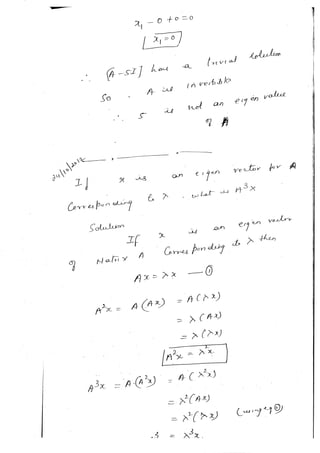 x₁ - 0 + 0 = 0
x₁ = 0
∴ (A - 5I) have a trivial solution
So A is invertible
∴ 5 is not an eigen value
of A
If x is an eigen vector for A
Corresponding to λ, what is A³x
Solution
If x is an eigen vector
of Matrix A Corresponding to λ then
Ax = λx —①
A²x = A(Ax) = A(λx)
= λ(Ax)
= λ(λx)
A²x = λ²x
A³x = A(A²x) = A(λ²x)
= λ²(Ax)
= λ²(λx) (using eq ①)
³ = λ³x.